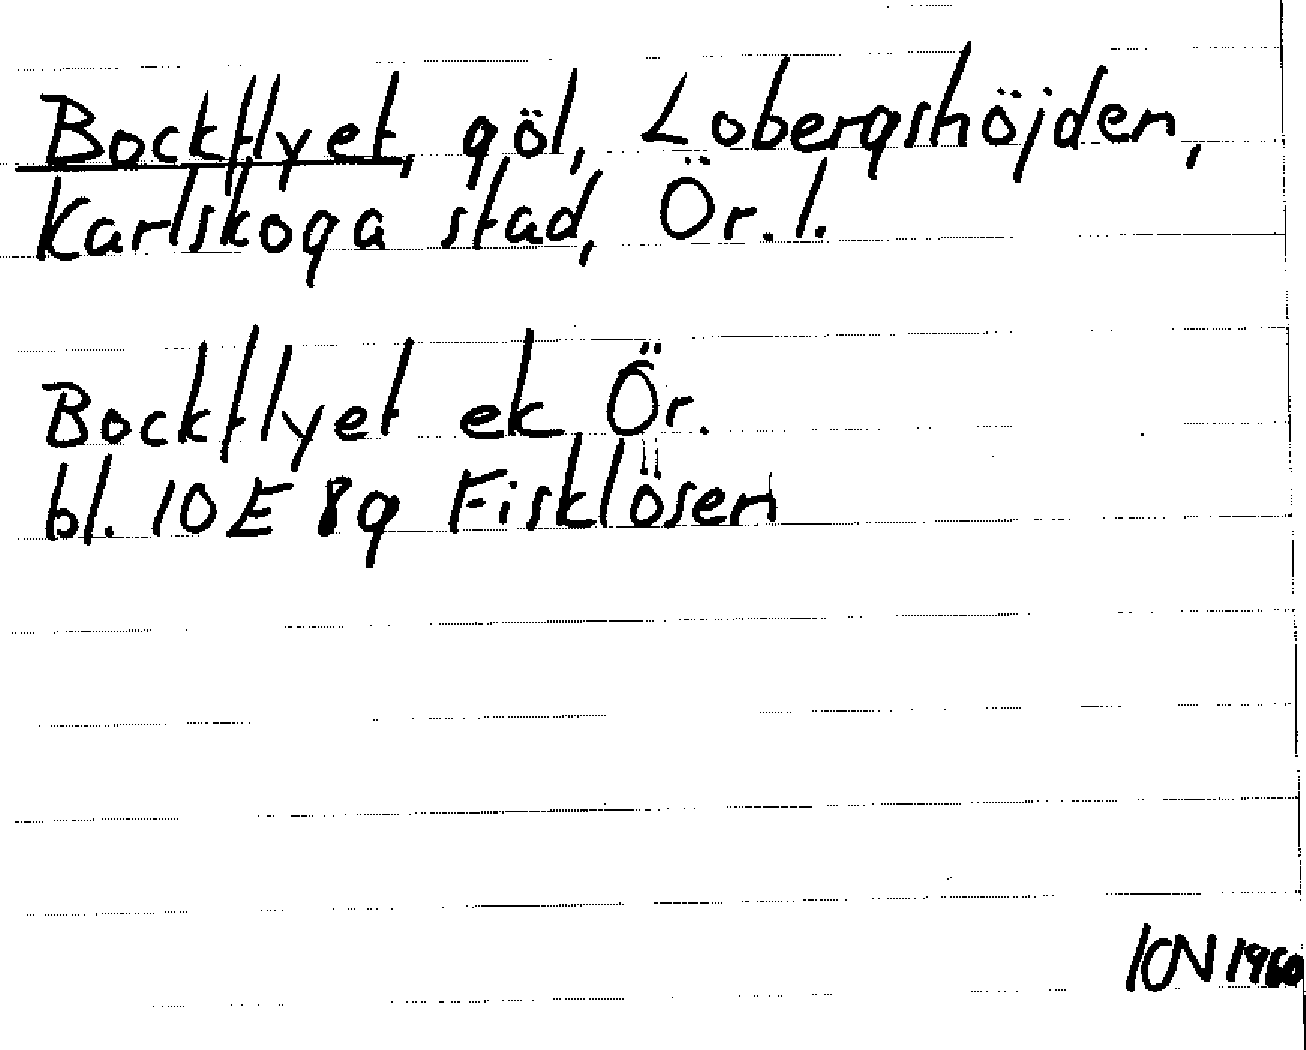 Bockflyet, göl, Lobergshöjden,
Karlskoga stad, Ör. l.
Bockflyet ek Ör.
bl. 10E 8g Fisklösen
ION 1960